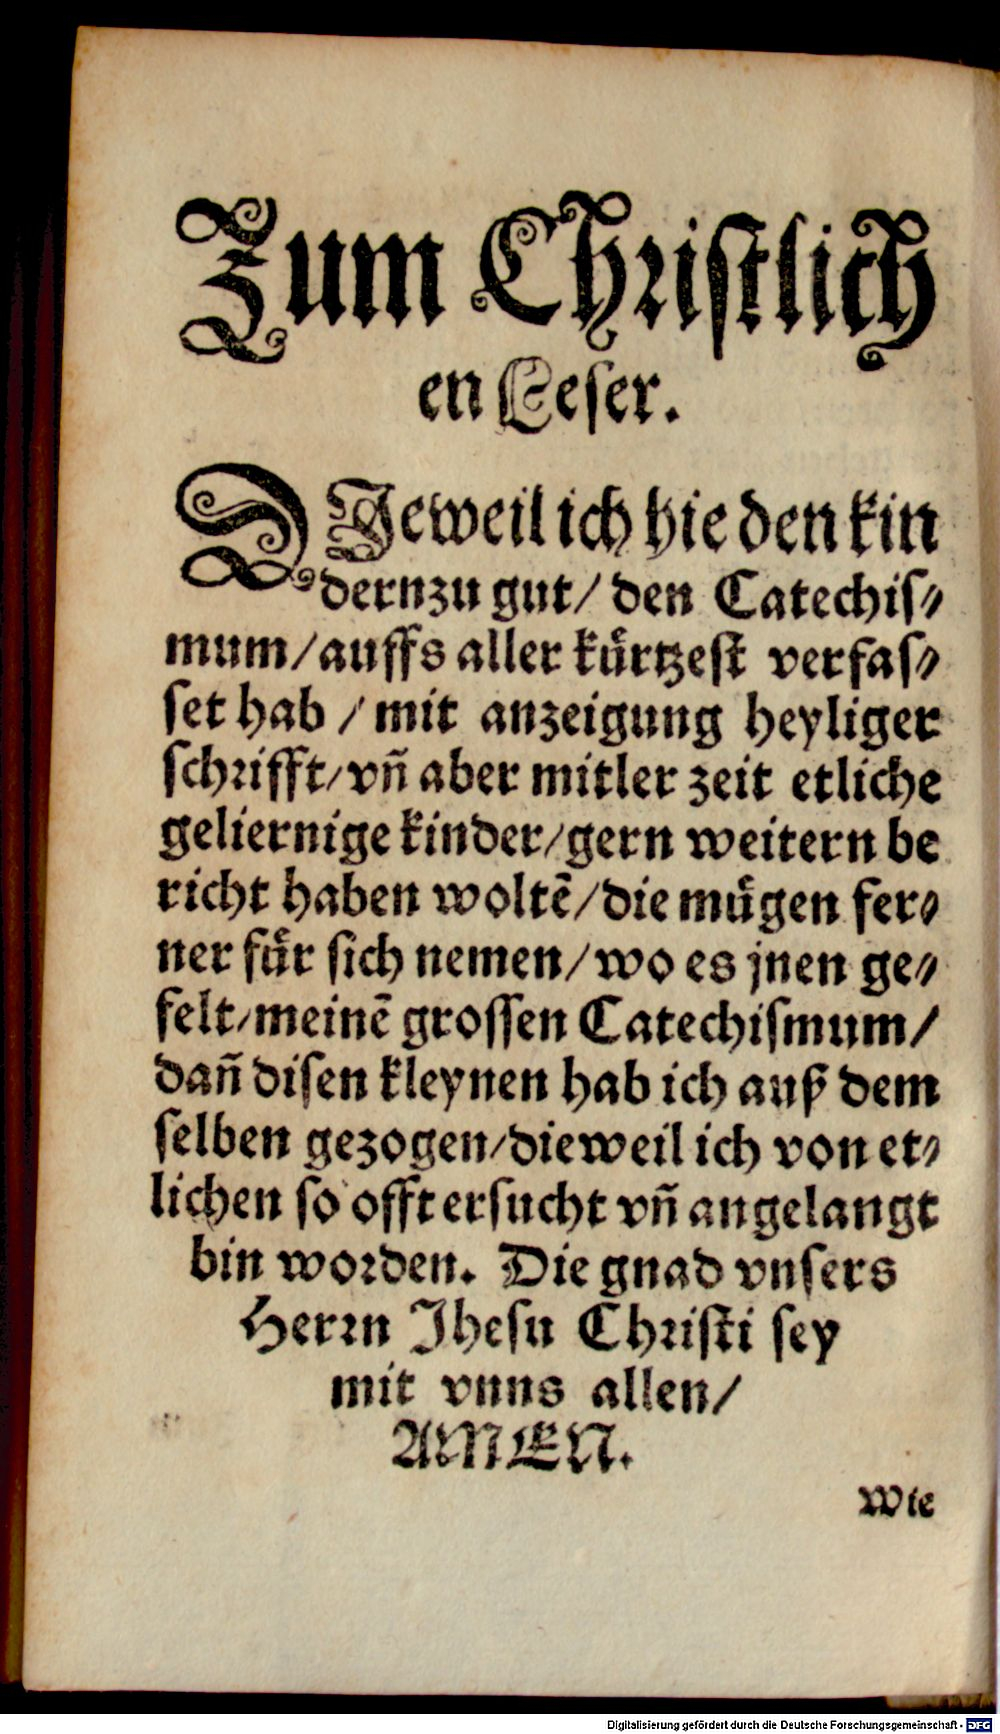 Zum Chriſtlich
en Leſer.
DJeweil ich hie den kin
dernzu gut/ den Catechiſ⸗
mum/auffs aller kuͤrtzeſt verfaſ⸗
ſet hab / mit anzeigung heyliger
ſchrifft/vñ aber mitler zeit etliche
geliernige kinder/gern weitern be
richt haben woltẽ/die muͤgen fer⸗
ner fuͤr ſich nemen/wo es jnen ge⸗
felt/meinẽ groſſen Catechiſmum/
dañ diſen kleynen hab ich auß dem
ſelben gezogen/dieweil ich von et⸗
lichen ſo offt erſucht vñ angelangt
bin worden. Die gnad vnſers
Herrn Jheſu Chriſti ſey
mit vnns allen/
AMEN.
Wie
Digitalisierung gefördert durch die Deutsche Forschungsgemeinschaft - DFG